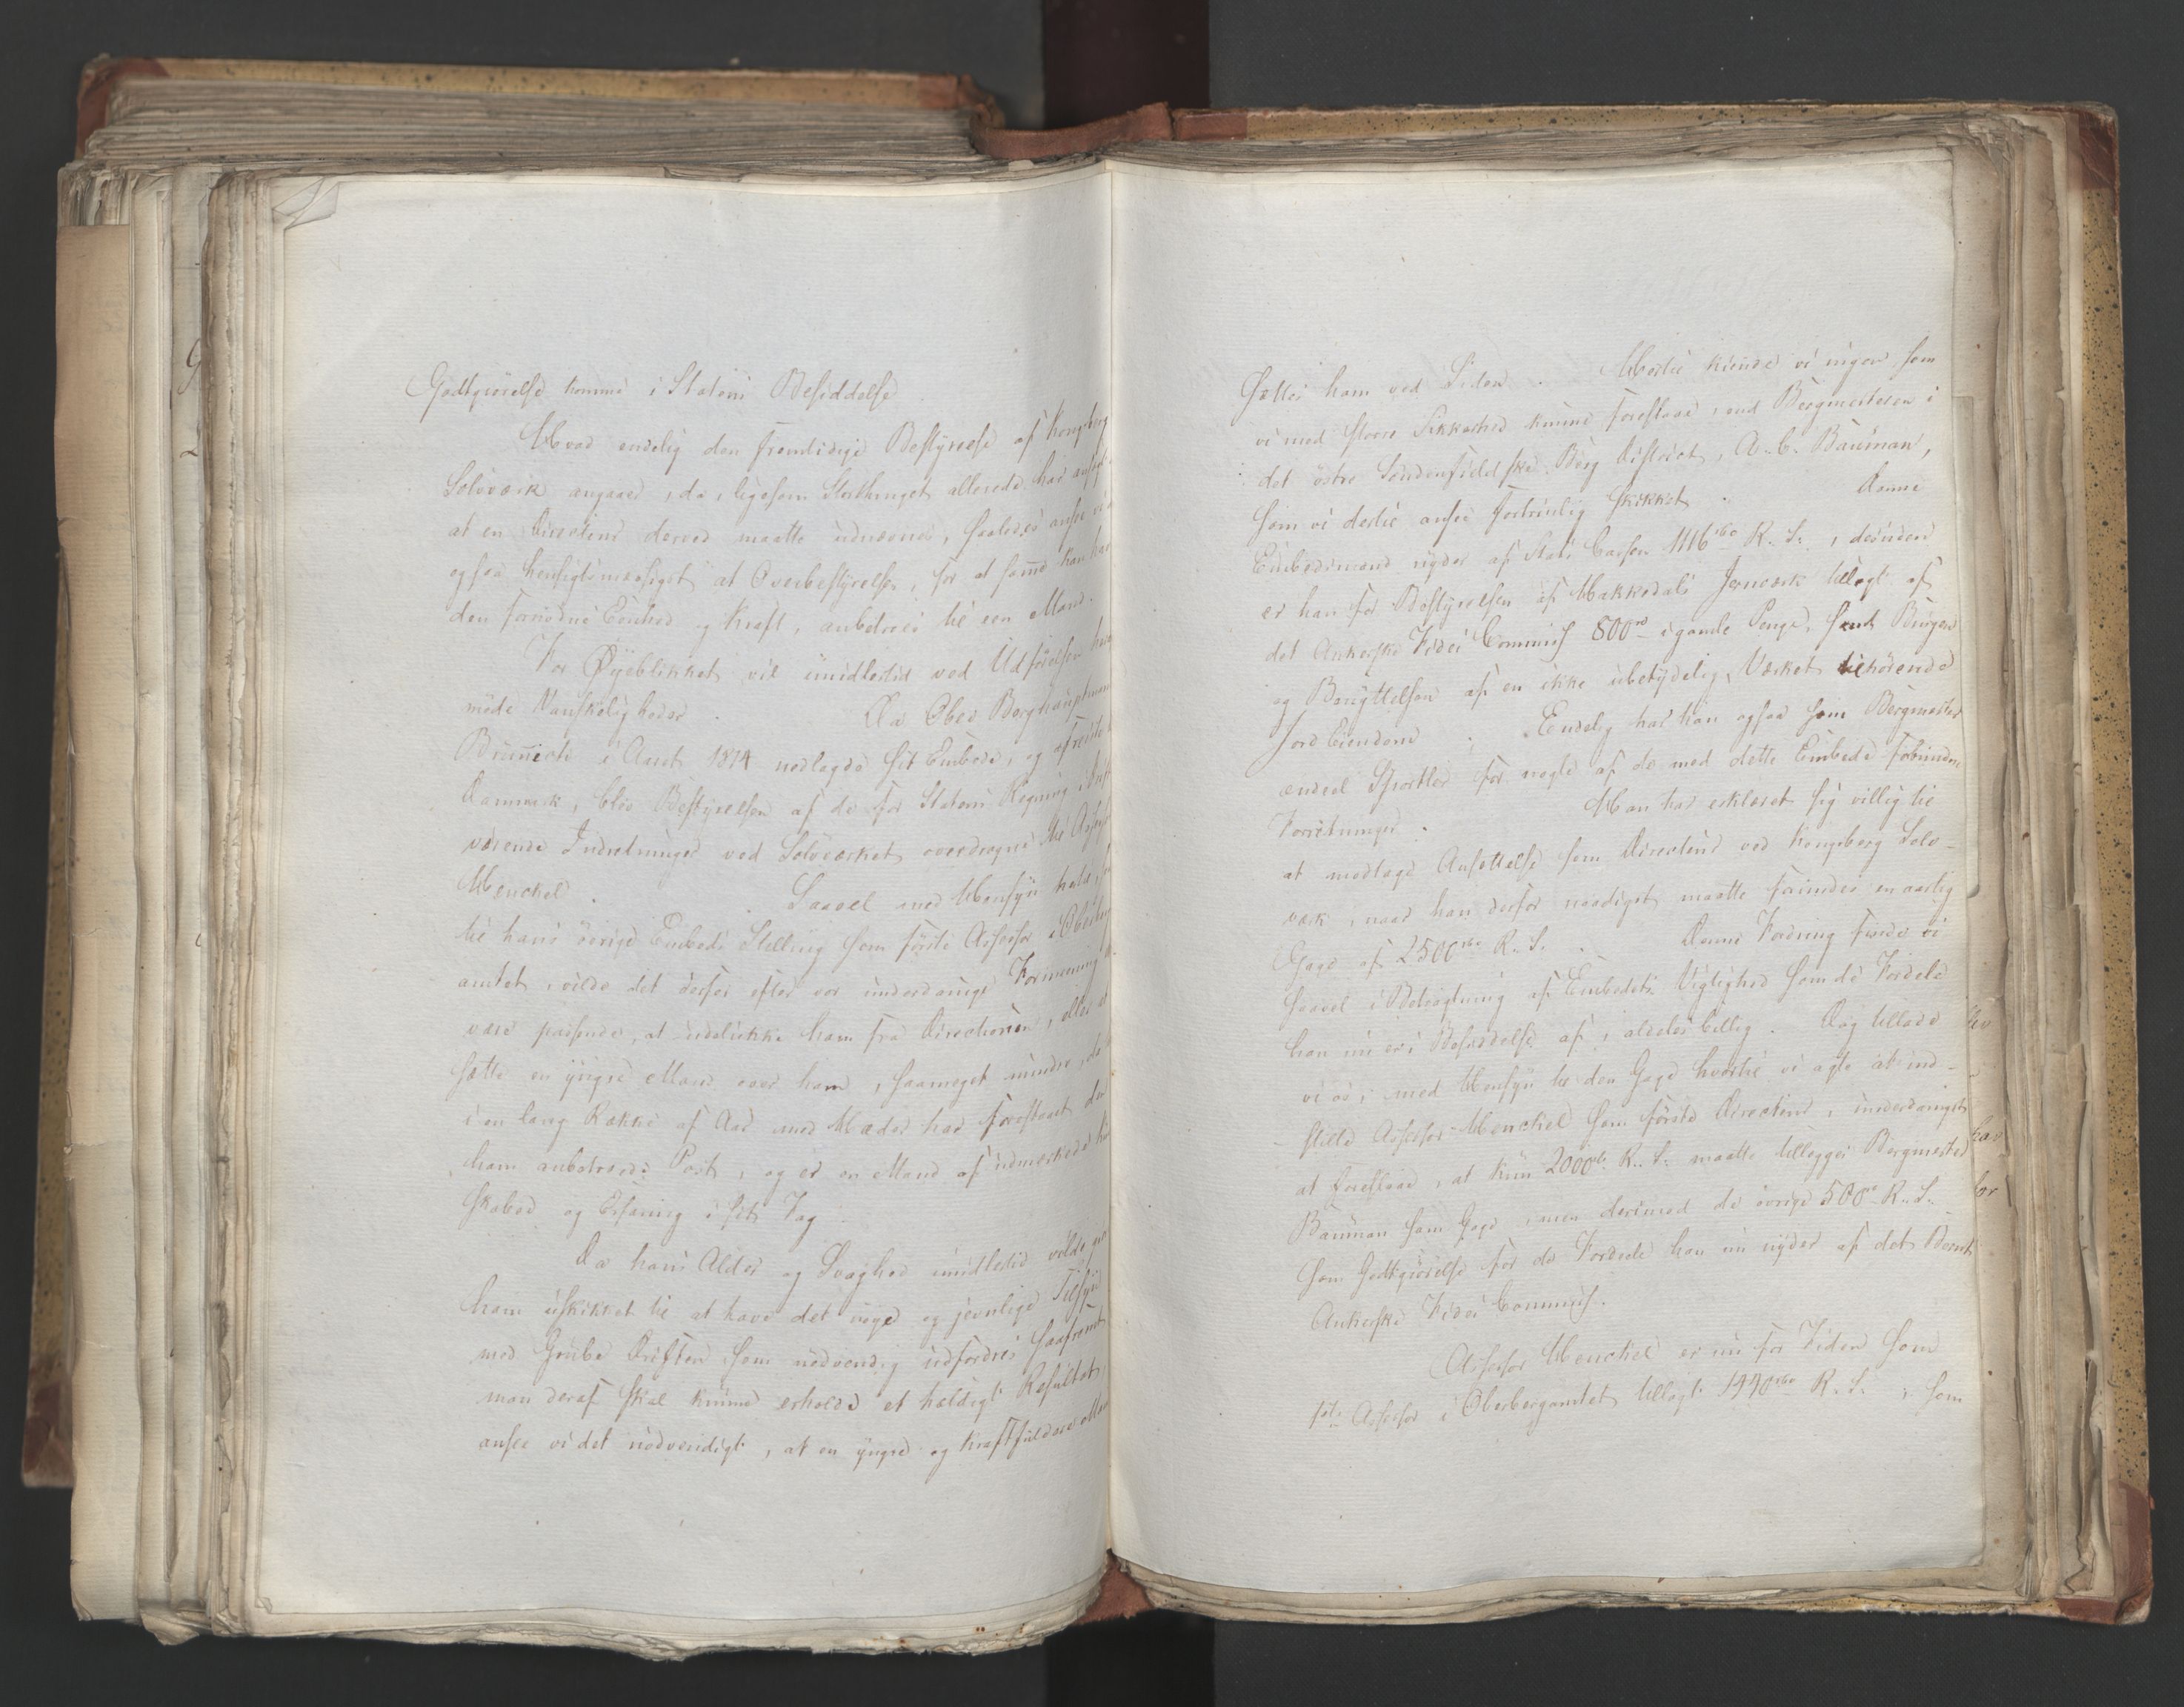 Godtgiörelse komme i Statens Besiddelse
Hvad endelig den fremtidige Bestyrelse af Kongsberg
Sölvværk angaaer, da, ligesom Storthinget allerede har ansögt
at en Directeur derved maatte udnævnes, saaledes ansee vi d
ogsaa hensigtsmæssigst at Overbestyrelsen, for at samme kan have
den fornödne Eenhed og Kraft, anbetroes til een Mand.
For Öyeblikket vil imidlertid ved Udförelsen heraf
möde Vanskeligheder. Da Ober Berghauptmand
Brünnich i Aaret 1814 nedlagde sit Embede, og afreiste t
Danmark, blev Bestyrelsen af de for Statens Regning i
værende Indretninger ved Sölvværket overdragne til Assessor
Henckel. Saavel med Hensyn hertil, s
til hans övrige Embeds Stilling som förste Assessor i Oberberg
amtet, vilde det derfor efter vor underdanige Formeening
være passende, at udelukke ham fra Directionen, eller at
sætte en yngre Mand over ham, saameget mindre, da h
i en lang Række af Aar med Hæder har forestaaet de
ham anbetroede Post, og er en Mand af udmærkede Kund
skaber og Erfaring i sit Fag
Da hans Alder og Svaghed imidlertid vilde gi
ham uskikket til at have det nöye og jevnlige Tilsyn
med Grube Driften som nödvendig udfordres saafremt
man deraf skal kunne erholde et heldigt Resultat,
ansee vi det nödvendigt, at en yngre og kraftfuldere Mand
sættes ham ved Siden. Hertil kiende vi ingen som
vi med större Sikkerhed kunne foreslaae, end Bergmesteren i
det östre Söndenfieldske Berg District, P. C. Bauman,
som vi dertil ansee fortrinlig skikket. Denne
Embedsmand nyder af Stats Cassen 1116 rbd R. S., desuden
er han for Bestyrelsen af Hakkedals Jernværk tillagt af
det Ankerske Fidei Commis 800 rd i gamle Penge, samt Brugen
og Benyttelsen af en ikke ubetydelig, Værket tilhörende
Jord Eiendom. Endelig har han ogsaa som Bergmester
endeel Sportler for nogle af de med dette Embede forbundne
Forretninger. Han har erklæret sig villig til
at modtage Ansættelse som Directeur ved Kongsberg Sölv-
værk, naar han derfor naadigst maatte forundes en aarlig
Gage af 2500 rbd R. S. Denne Fordring finde vi
saavel i Betragtning af Embedets Vigtighed som de Fordele
han nu er i Besiddelse af, aldeles billig. Dog tillade
vi os, med Hensyn til den Gage hvortil vi agte at ind-
stille Assessor Henckel som förste Directeur, underdanigst
at foreslaae, at kun 2000 rbd. R. S. maatte tillægges Bergmester
Bauman som Gage, men derimod de övrige 500 rbd R. S.
som Godtgiörelse for de Fordele han nu nyder af det Bernt
Ankerske Fidei Commis.
Assessor Henckel er nu for Tiden som
1ste Assessor i Oberbergamtet tillagt 1440 rbd R. S., som